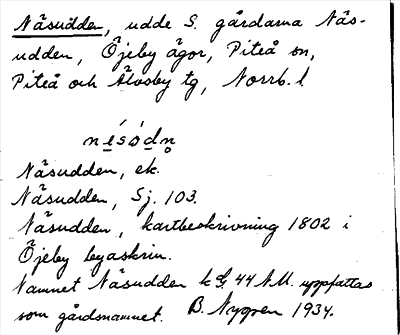 Näsudden, udde S. gårdarna Näs-
udden, Öjeby ägor, Piteå sn,
Piteå och Älvsby tg, Norrb. l
Näsudden, ek.
Näsudden, Sj. 103.
Näsudden, kartbeskrivning 1802 i
Öjeby byaskrin.
Namnet Näsudden 44 N.U. uppfattas
som gårdsnamnet. B. Nygren 1934.